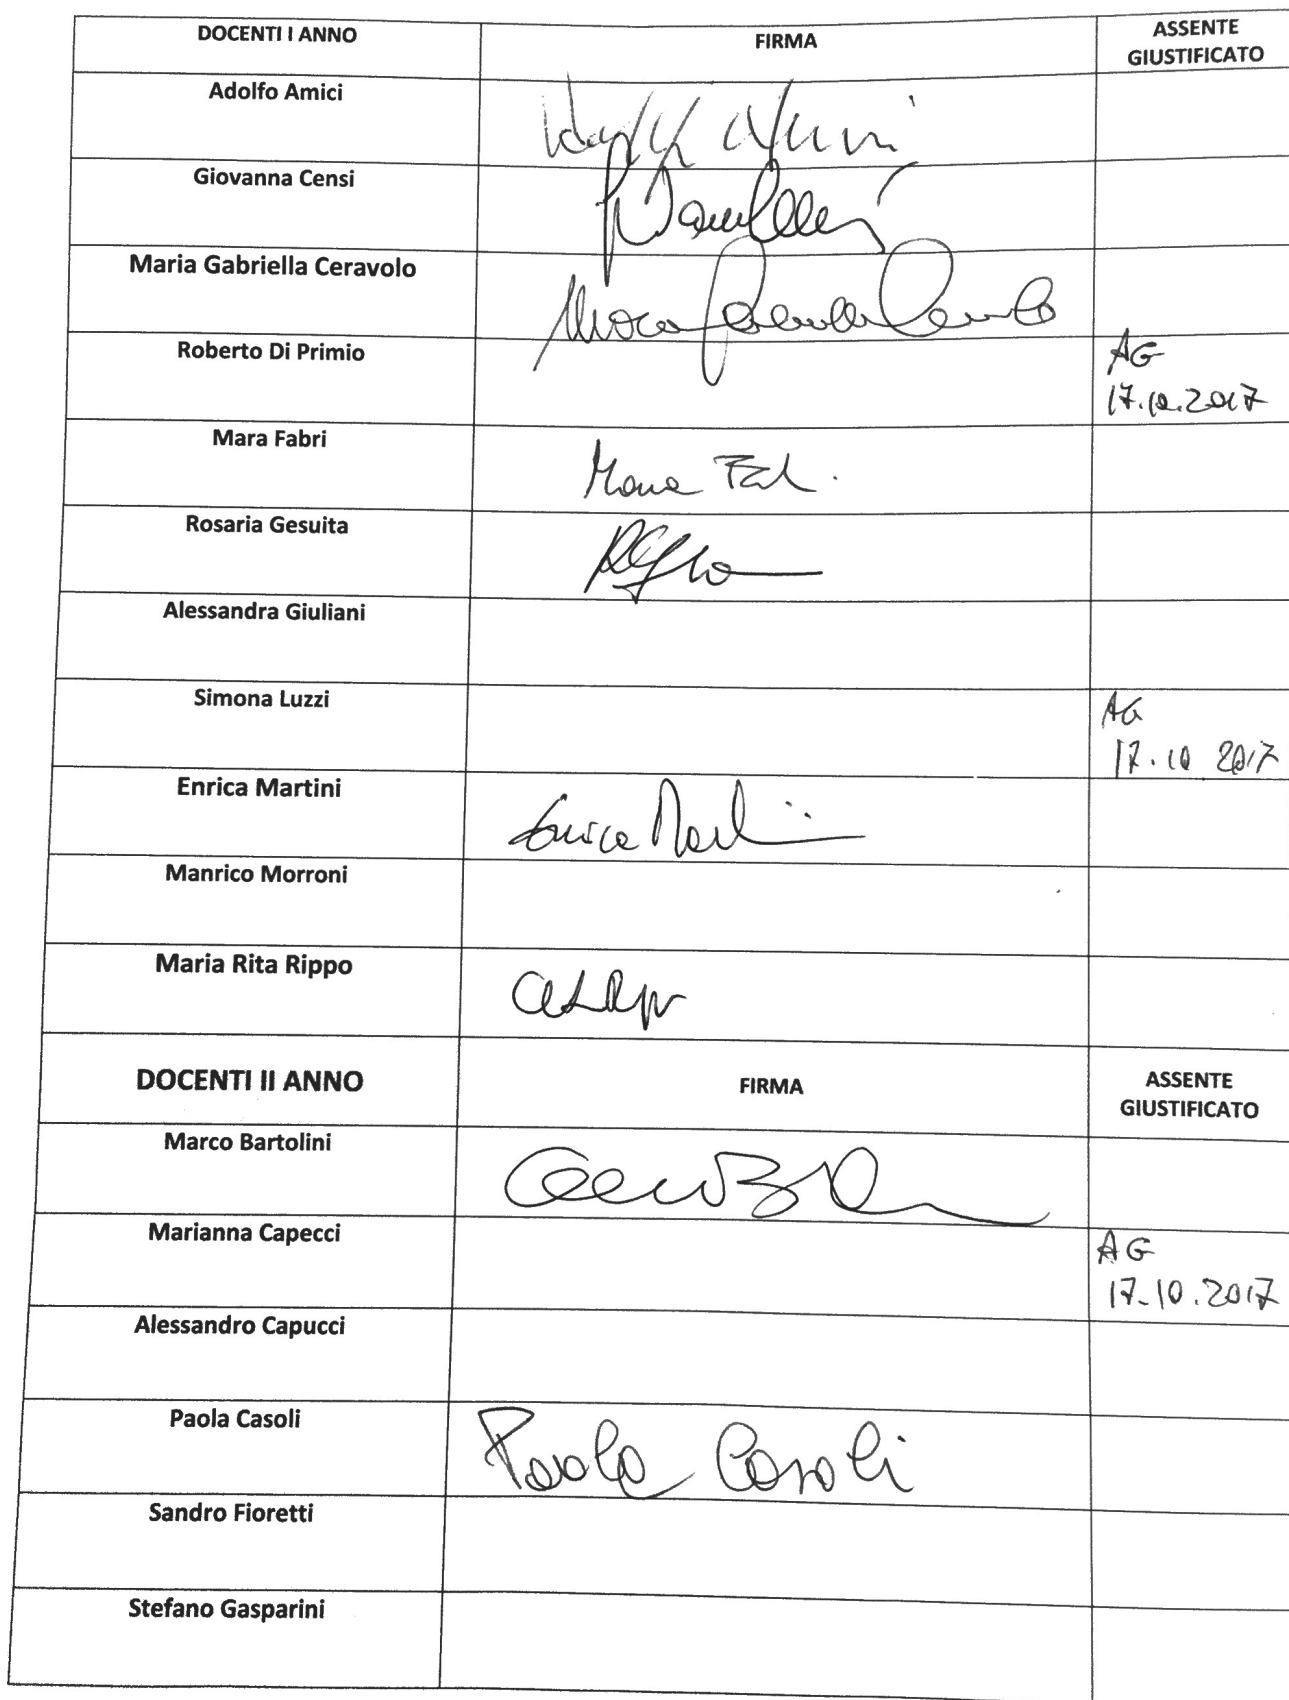 DOCENTI I ANNO FIRMA ASSENTE
GIUSTIFICATO
Adolfo Amici
Giovanna Censi
Maria Gabriella Ceravolo
Roberto Di Primio AG
17.10.2017
Mara Fabri Mara
Rosaria Gesuita
Alessandra Giuliani
Simona Luzzi AG
17.10 2017
Enrica Martini Enrica
Manrico Morroni
Maria Rita Rippo
DOCENTI II ANNO FIRMA ASSENTE
GIUSTIFICATO
Marco Bartolini
Marianna Capecci AG
17.10.2017
Alessandro Capucci
Paola Casoli Paola Casoli
Sandro Fioretti
Stefano Gasparini